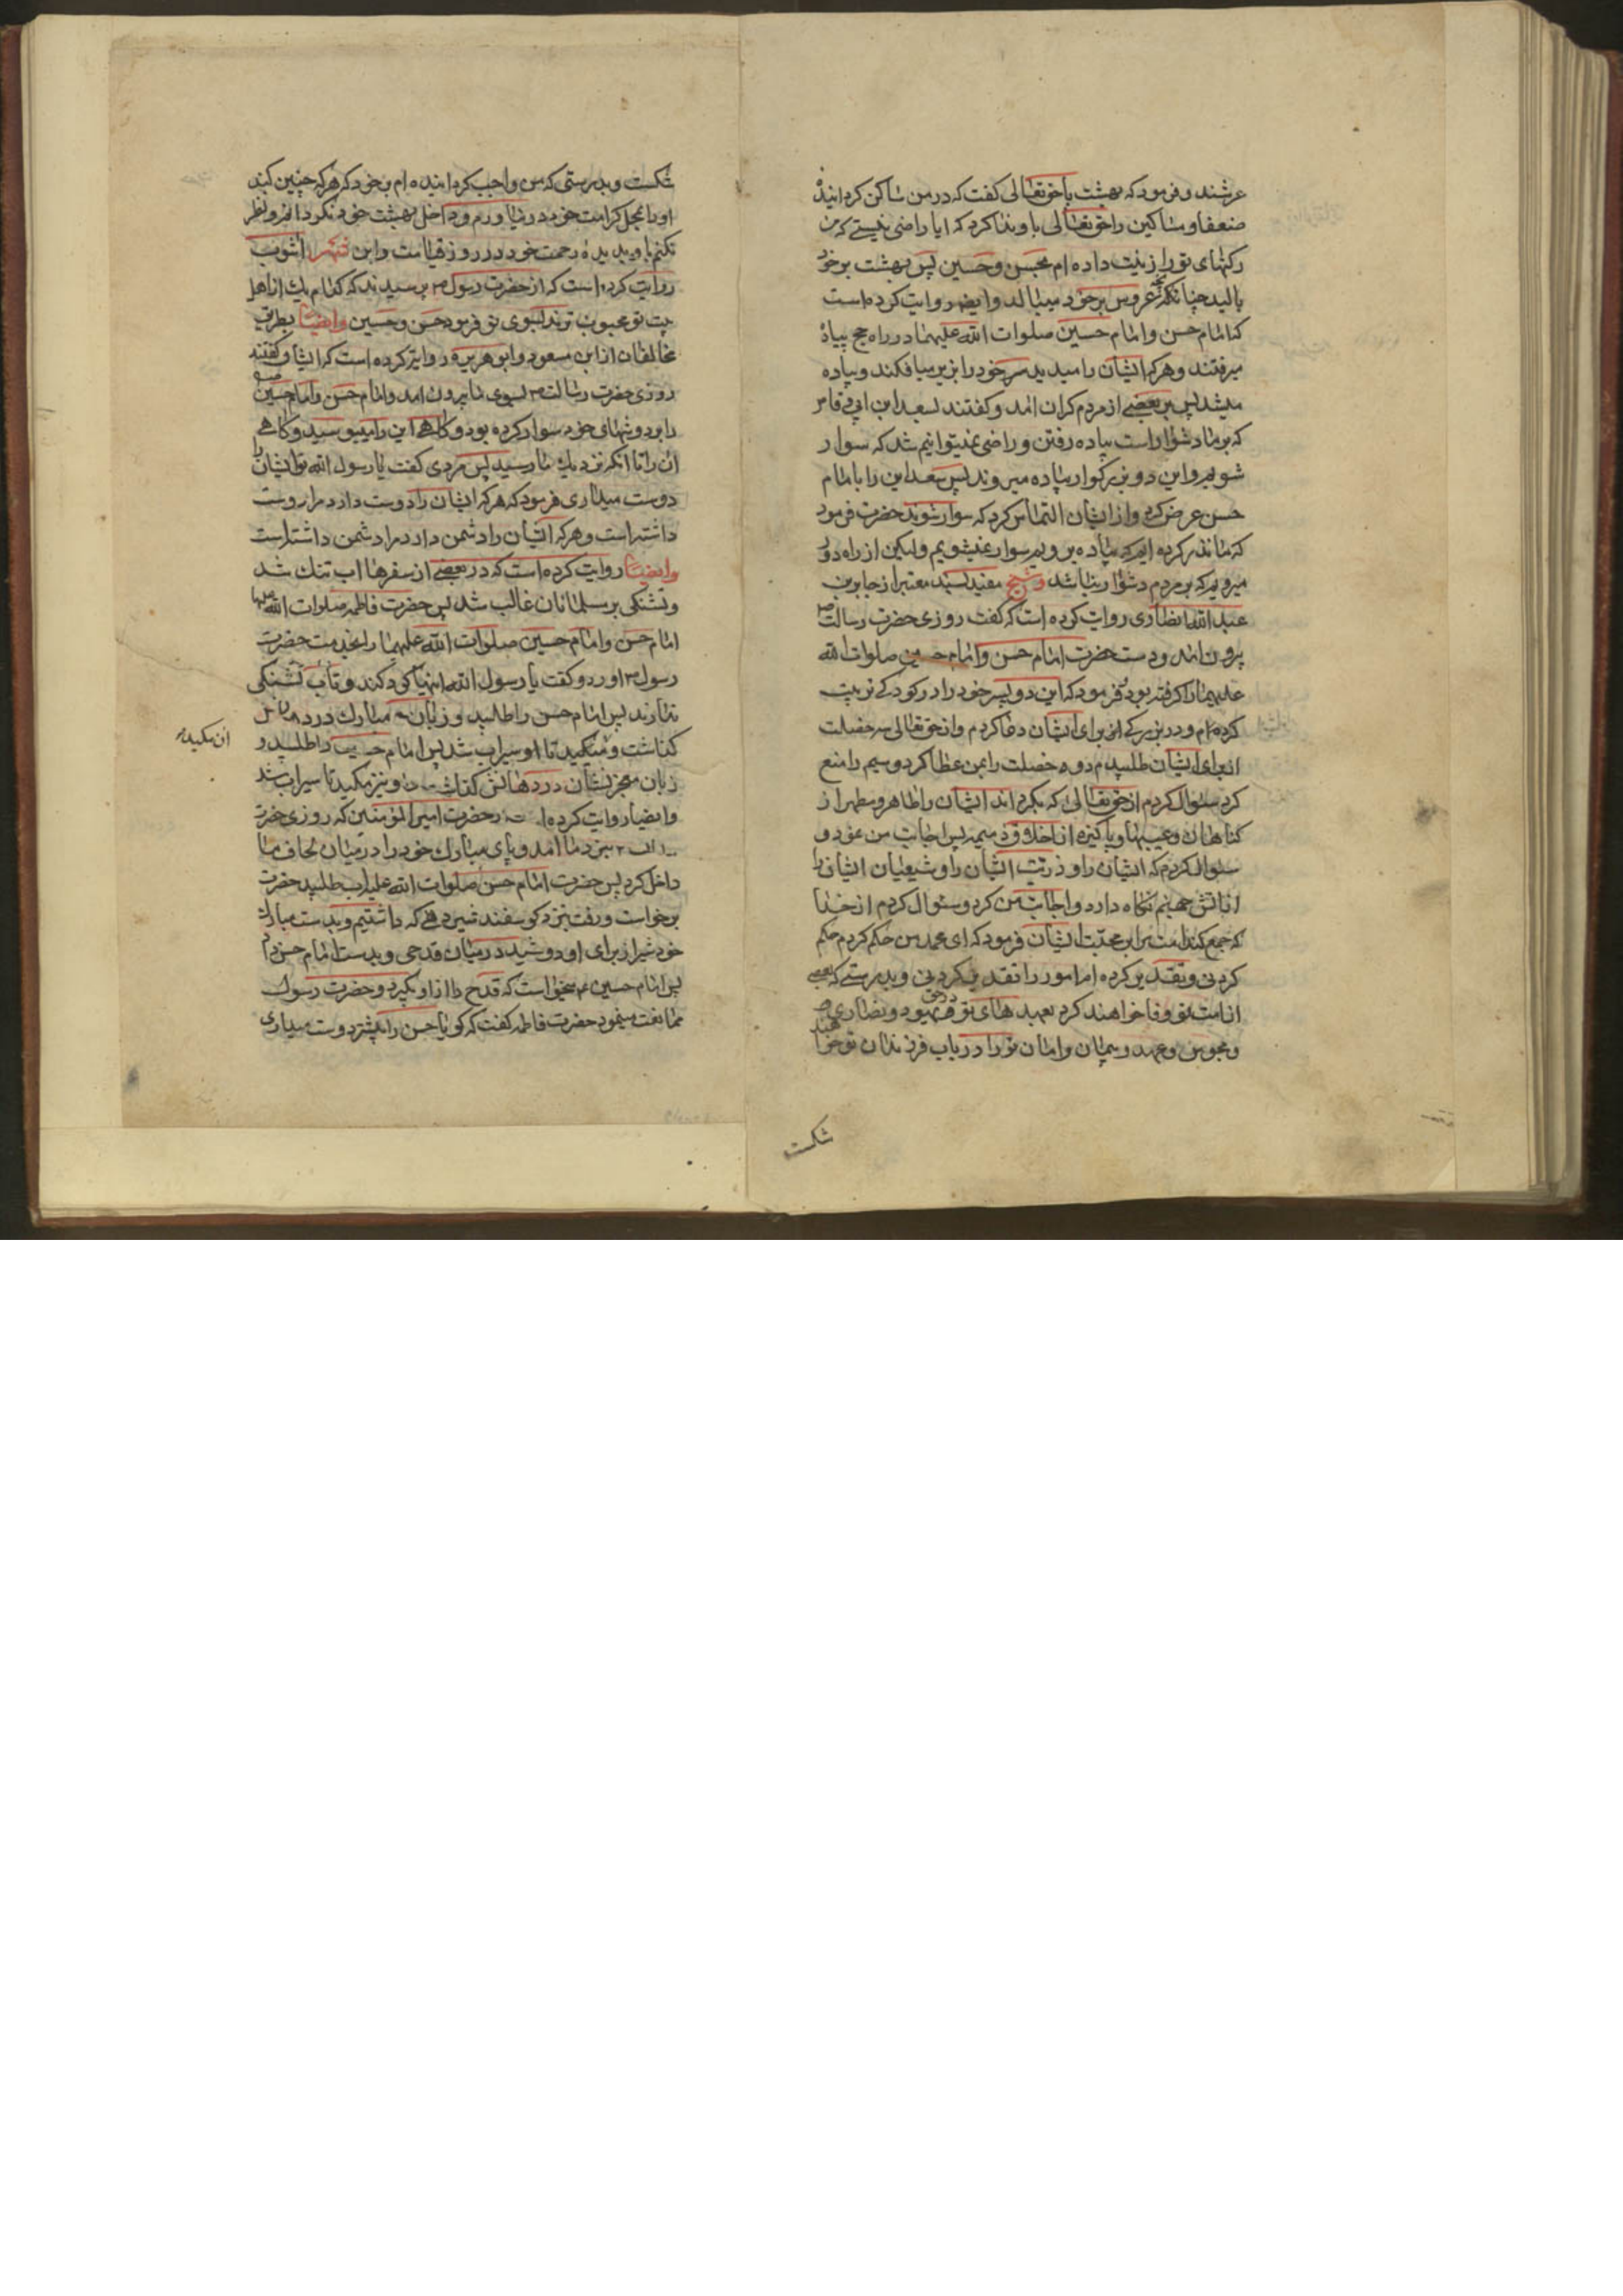 عرشند و فرمود که بهشت با حقتعالی گفت که در من ساکن کردانیدهٔ
ضعفا و مساکین را حقتعالی باو ندا کرد که ایا راضی نیستی که من
رکنهای تو را زینت داده ام بحسن و حسین پس بهشت بر خود
بالید چنانکه عروس بر خود میبالد و ایضا روایت کرده است
که امام حسن و امام حسین صلوات الله علیهما در راه حج پیاده
میرفتند و هر که ایشان را میدید سر خود را بزیر میافکند و پیاده
میشد پس بر بعضی از مردم کران امد و کفتند بسعد ابن ابی وقاص
که بر ما دشوار است پیاده رفتن و راضی نمیتوانیم شد که سوار
شویم و این دو بزرکوار پیاده میروند پس سعد این را بامام
حسن عرض کرد و از ایشان التماس کرد که سوار شوند حضرت فرمود
که ما نذر کرده ایم که پیاده برویم سوار نمیشویم ولیکن از راه دور
میرویم که بر مردم دشوار نباشد و شیخ مفید بسند معتبر از جابر بن
عبد الله انصاری روایت کرده است که گفت روزی حضرت رسالت ص
برون امد و دست حضرت امام حسن و امام حسین صلوات الله
علیهما را کرفته بود فرمود که این دو پسر خود را در کودکی تربیت
کرده ام و در بزرکی از برای ایشان دعا کردم و از حق تعالی سه خصلت
از برای ایشان طلبیدم دو خصلت را بمن عطا کرد و سیم را منع
کرد سئوال کردم از حق تعالی که بکرداند ایشان را طاهر و مطهر از
کناهان و عیبها و پاکیزه از اخلاق ذمیمه پس اجابت من نمود و
سئوال کردم که ایشان را و ذریت ایشان را و شیعیان ایشان را
از اتش جهنم نکاه دارد و اجابت من کرد و سئوال کردم از خدا
که جمع کند امت را بر محبت ایشان فرمود که ای محمد من حکم کردم حکم
کردنی و تقدیر کرده ام امور را تقدیر کردنی و بدرستی که بعضی
از امت تو وفا خواهند کرد بعهد های تو در حق یهود و نصاری
و مجوس و عهد و پیمان و امان تو را در باب فرزندان تو خواهند
شکست
شکست و بدرستی که من واجب کردانیده ام بر خود که هر که چنین کند
او را بمحل کرامت خود در نیاورم و داخل بهشت خود نکردانم و نظر
نکنم باو بدیدهٔ رحمت خود در روز قیامت و ابن شهر اشوب
روایت کرده است که از حضرت رسول ص پرسیدند که کدام یک از اهل
بیت تو محبوب ترند بسوی تو فرمود حسن و حسین و ایضا بطریق
مخالفان از ابن مسعود و ابو هریره روایت کرده است که ایشان کفتند
روزی حضرت رسالت ص بسوی ما بیرون امد و امام حسن و امام حسین
را بر دوشهای خود سوار کرده بود و کاهی این را میبوسید و کاهی
ان را تا انکه نزدیک ما رسید پس مردی کفت یا رسول الله تو ایشان را
دوست میداری فرمود که هر که ایشان را دوست دارد مرا دوست
داشته است و هر که ایشان را دشمن دارد مرا دشمن داشته است
و ایضا روایت کرده است که در بعضی از سفرها اب تنک شد
و تشنکی بر مسلمانان غالب شد پس حضرت فاطمه صلوات الله علیها
امام حسن و امام حسین صلوات الله علیهما را بخدمت حضرت
رسول ص اورد و کفت یا رسول الله اینها کودکند و تاب تشنکی
ندارند پس امام حسن را طلبید و زبان مبارک در دهانش
کذاشت و میکید تا او سیراب شد پس امام حسین را طلبید و
ان مکیده
زبان معجز نشان در دهانش کذاشت و نیز مکید تا سیراب شد
و ایضا روایت کرده از حضرت امیر المؤمنین که روزی حضرت
بنزد ما امد و پای مبارک خود را در میان لحاف ما
داخل کرد پس حضرت امام حسن صلوات الله علیه اب طلبید حضرت
برخواست و رفت بنزد کوسفند شیر دهی که داشتیم و بدست مبارک
خود شیر از برای او دوشید در میان قدحی و بدست امام حسن داد
پس امام حسین ع میخواست که قدح را از او بکیرد و حضرت رسول
ممانعت مینمود حضرت فاطمه کفت که کویا حسن را بیشتر دوست میداری